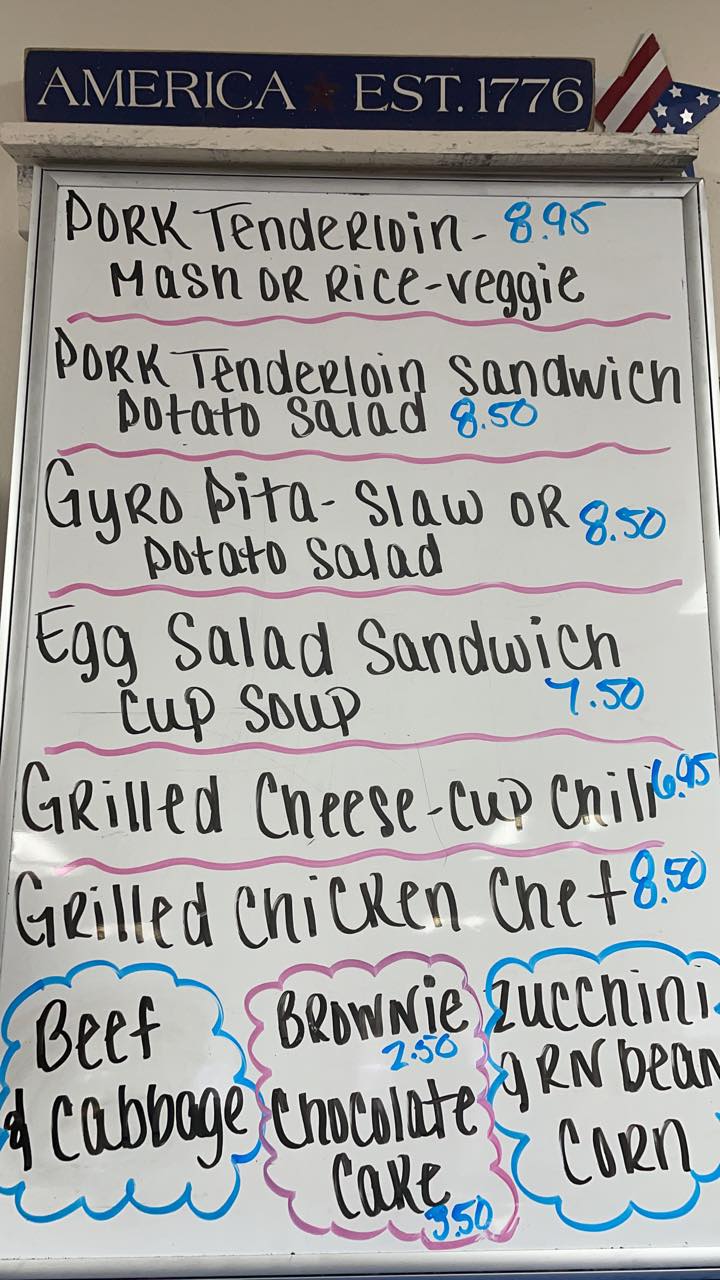 AMERICA ★ EST. 1776
PORK Tenderloin - 8.95
Mash OR Rice-veggie
PORK Tenderloin Sandwich
Potato Salad 8.50
Gyro Pita- Slaw OR 8.50
Potato Salad
Egg Salad Sandwich
Cup Soup 7.50
Grilled Cheese-Cup Chili 6.95
Grilled Chicken Chef 8.50
Beef
& Cabbage
Brownie
2.50
Chocolate
Cake
3.50
Zucchini
GRN bean
CORN